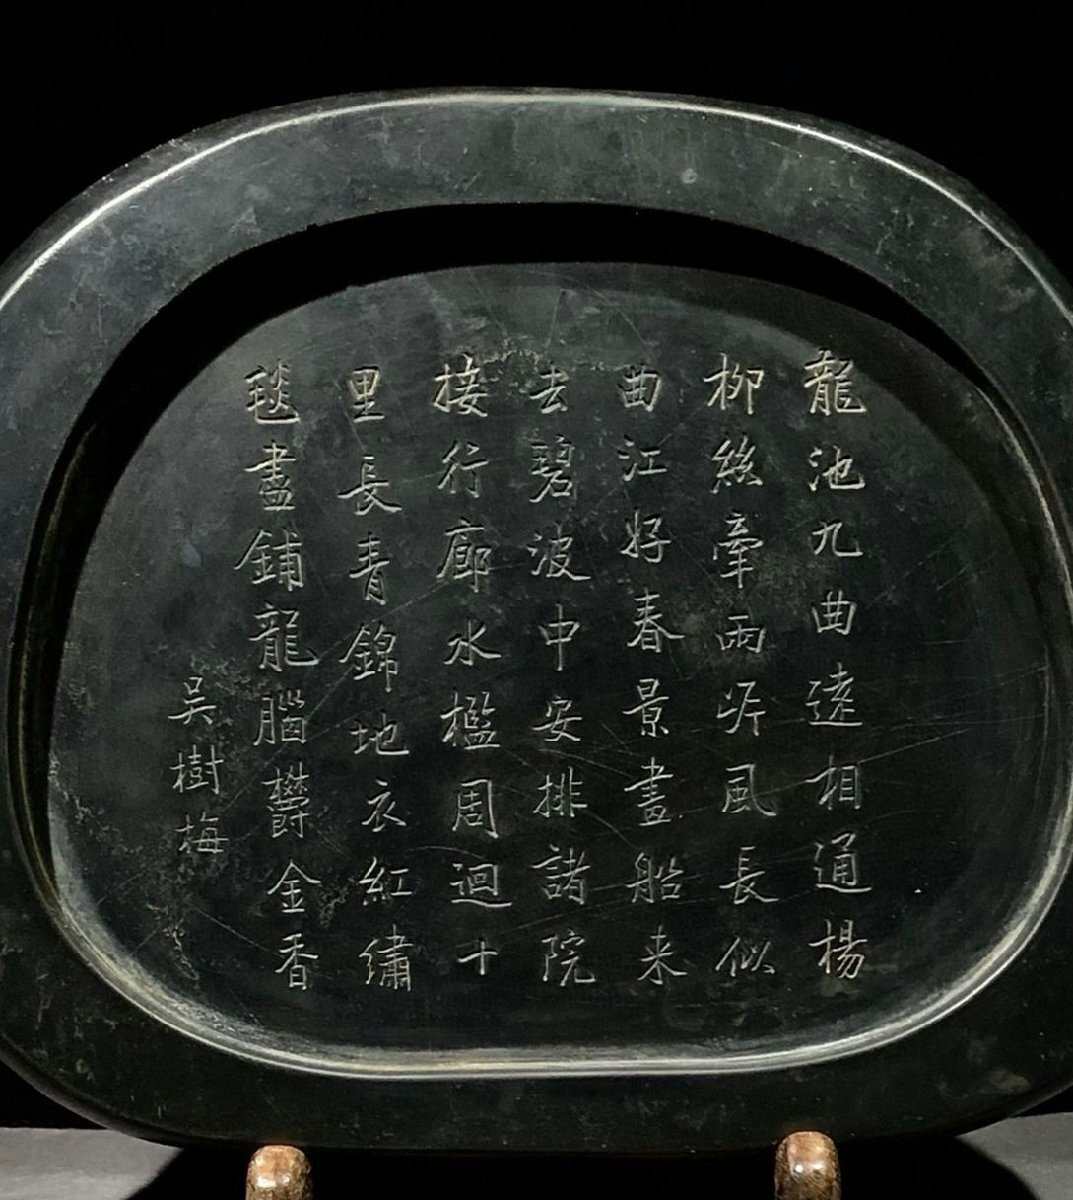 龍池九曲遠相通楊
柳絲牽兩岸風長似
曲江好春景畫船来
去碧波中安排諸院
接行廊水檻周迴十
里長青錦地衣紅繡
毯盡鋪龍腦欝金香
吳樹梅